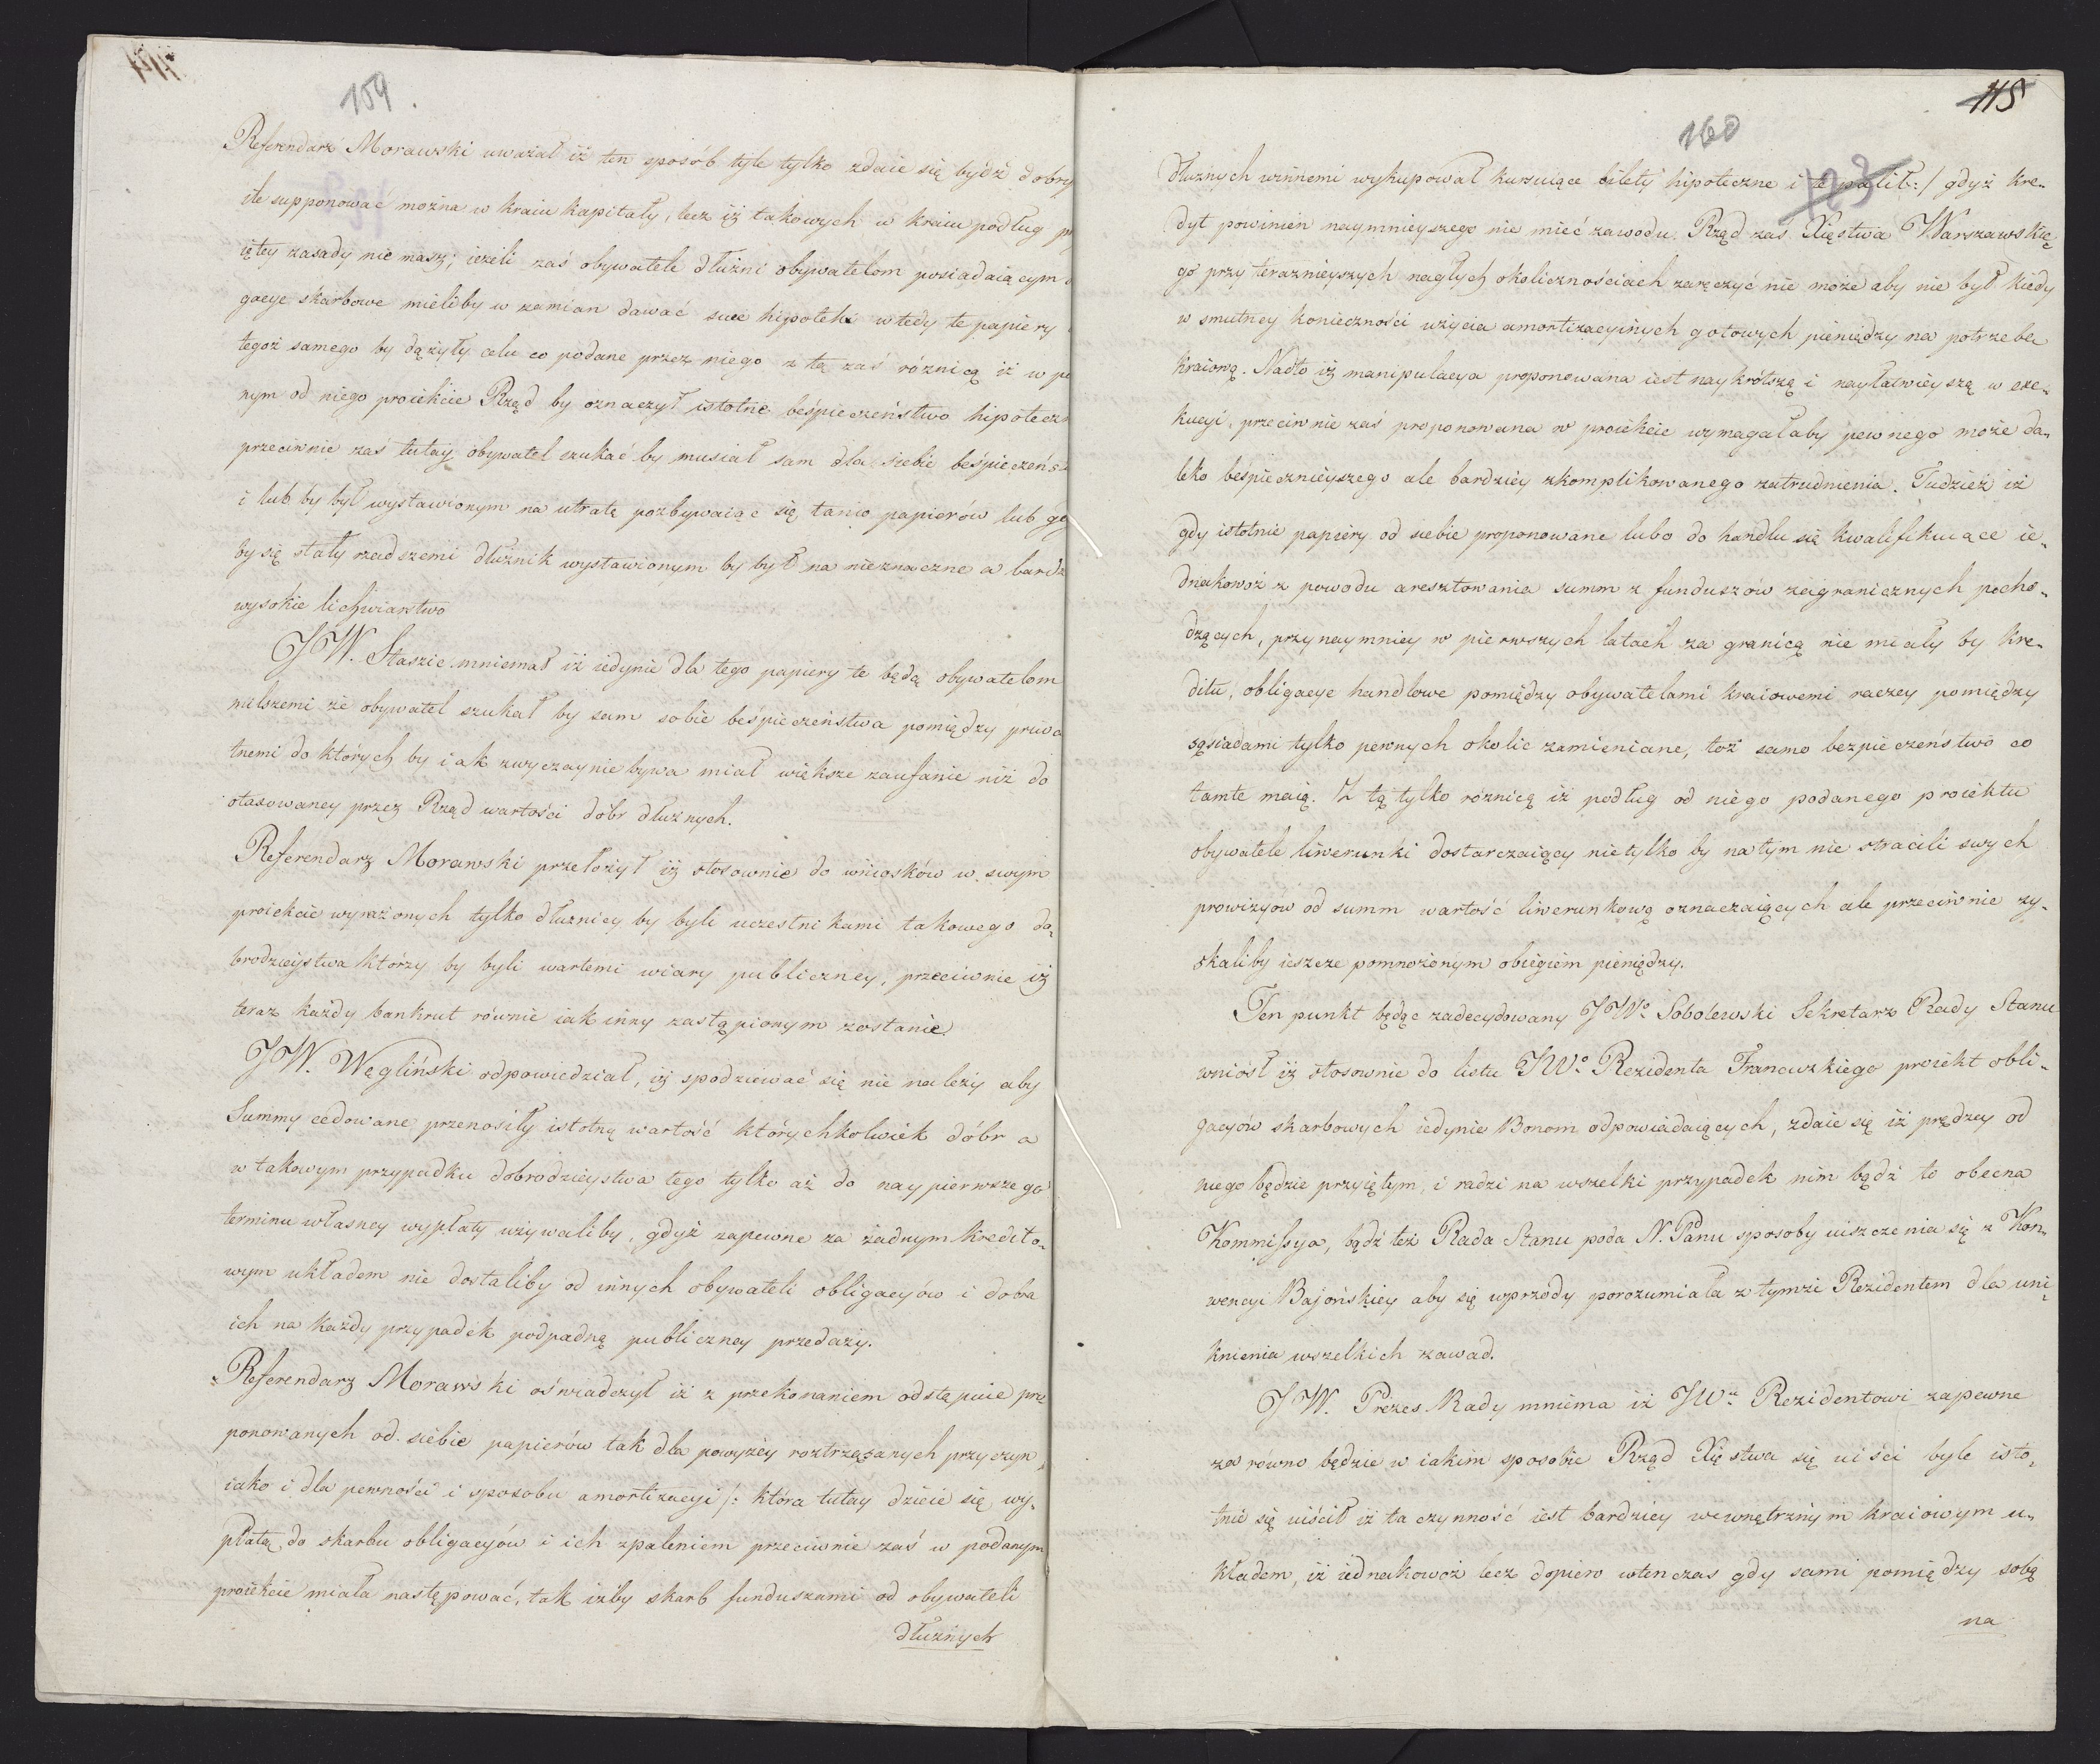 159.
Referendarz Morawski uważał iż ten sposób tyle tylko zdaie się bydź dobry
ile supponować można w kraiu kapitały, lecz iż takowych w kraiu podług
iętey zasady nie masz; ieżeli zaś obywatele dłużni obywatelom posiadaiącym
gacye skarbowe mieliby w zamian dawać swe hipoteki wtedy te papiery
tegoż samego by dążyły celu co podane przez niego z tą zaś różnicą iż w po
nym od niego proiekcie Rząd by oznaczył istotne beśpieczeństwo hipoteczn
przeciwnie zaś tutay obywatel szukać by musiał sam dla siebie beśpieczeńs
i lub by był wystawionym na utratę pozbywaiąc się tanio papierów lub gd
by się stały rzadszemi dłużnik wystawionym by był na nieznaczne a bardz
wysokie lichwiarstwo
JW. Staszic mniemał iż iedynie dla tego papiery te będą obywatelom
milszemi że obywatel szukał by sam sobie beśpieczeństwa pomiędzy prywa
tnemi do których by iak zwyczaynie bywa miał większe zaufanie niż do
otasowaney przez Rząd wartości dóbr dłużnych.
Referendarz Morawski przełożył iż stosownie do wniosków w swym
proiekcie wyrażonych tylko dłużnicy by byli uczestnikami takowego do„
brodzieystwa którzy by byli wartemi wiary publiczney, przeciwnie iż
teraz każdy bankrut równie iak inny zastąpionym zostanie.
JW. Węgliński odpowiedział, iż spodziewać się nie należy aby
Summy cedowane przenosiły istotną wartość którychkolwiek dóbr a
w takowym przypadku dobrodzieystwa tego tylko aż do naypierwszego
terminu własney wypłaty używaliby, gdyż zapewne za żadnym kredito„
wym układem nie dostaliby od innych obywateli obligacyów i dobra
ich na każdy przypadek podpadną publiczney przedaży.
Referendarz Morawski oświadczył iż z przekonaniem odstępuie pro
ponowanych od siebie papierów tak dla powyżey roztrząsanych przyczyn,
iako i dla pewności i sposobu amortizacyi /: która tutay dzieie się wy„
płatą do skarbu obligacyów i ich spaleniem przeciwnie zaś w podanym
proiekcie miała następować, tak iżby skarb funduszami od obywateli
dłużnych
115
160
123
dłużnych winnemi wykupował kursuiące bilety hipoteczne i te palił :/ gdyż kre„
dyt powinien naymnieyszego nie mieć zawodu. Rząd zaś Xięstwa Warszawskie
go przy terazniеyszych nagłych okolicznościach zaręczyć nie może aby nie był kiedy
w smutney konieczności użycia amortizacyinych gotowych pieniędzy na potrzebę
kraiową. Nadto iż manipulacya proponowana iest naykrótszą i nayłatwieyszą w exe„
kucyi, przeciwnie zaś proponowana w proiekcie wymagałaby pewnego może da„
leko beśpiecznieyszego ale bardziey skomplikowanego zatrudnienia. Tudzież iż
gdy istotnie papiery od siebie proponowane lubo do handlu się kwalifikuiące ie„
dnakowoż z powodu aresztowania summ z funduszów zagranicznych pocho„
dzących, przynaymniey w pierwszych latach za granicą nie miały by kre„
ditu, obligacye handlowe pomiędzy obywatelami kraiowemi raczey pomiędzy
sąsiadami tylko pewnych okolic zamieniane, toż samo bezpieczeństwo co
tamte maią. Z tą tylko różnicą iż podług od niego podanego proiektu
obywatele liwerunki dostarczaiący nietylko by na tym nie stracili swych
prowizyów od summ wartość liwerunkową oznaczaiących ale przeciwnie zy„
skaliby ieszcze pomnożonym obiegiem pieniędzy.
Ten punkt będąc zadecydowany JWº Sobolewski Sekretarz Rady Stanu
wniósł iż stosownie do listu JWº Rezidenta Francuzkiego proiekt obli„
gacyów skarbowych iedynie Bonom odpowiadaiących, zdaie się iż prędzey od
niego będzie przyiętym, i radzi na wszelki przypadek nim bądź to obecna
Kommissya, bądź też Rada Stanu poda N. Panu sposoby uiszczenia się z Kon„
wencyi Bajońskiey aby się wprzódy porozumiała z tymże Rezidentem dla uni„
knienia wszelkich zawad.
JW. Prezes Rady mniema iż JWº Rezidentowi zapewne
za rowno będzie w iakim sposobie Rząd Xięstwa się uiści byle isto„
tnie się uiścił iż ta czynność iest bardziey wewnętrznym kraiowym u„
kładem, iż iednakowoż lecz dopiero wtenczas gdy sami pomiędzy sobą
na